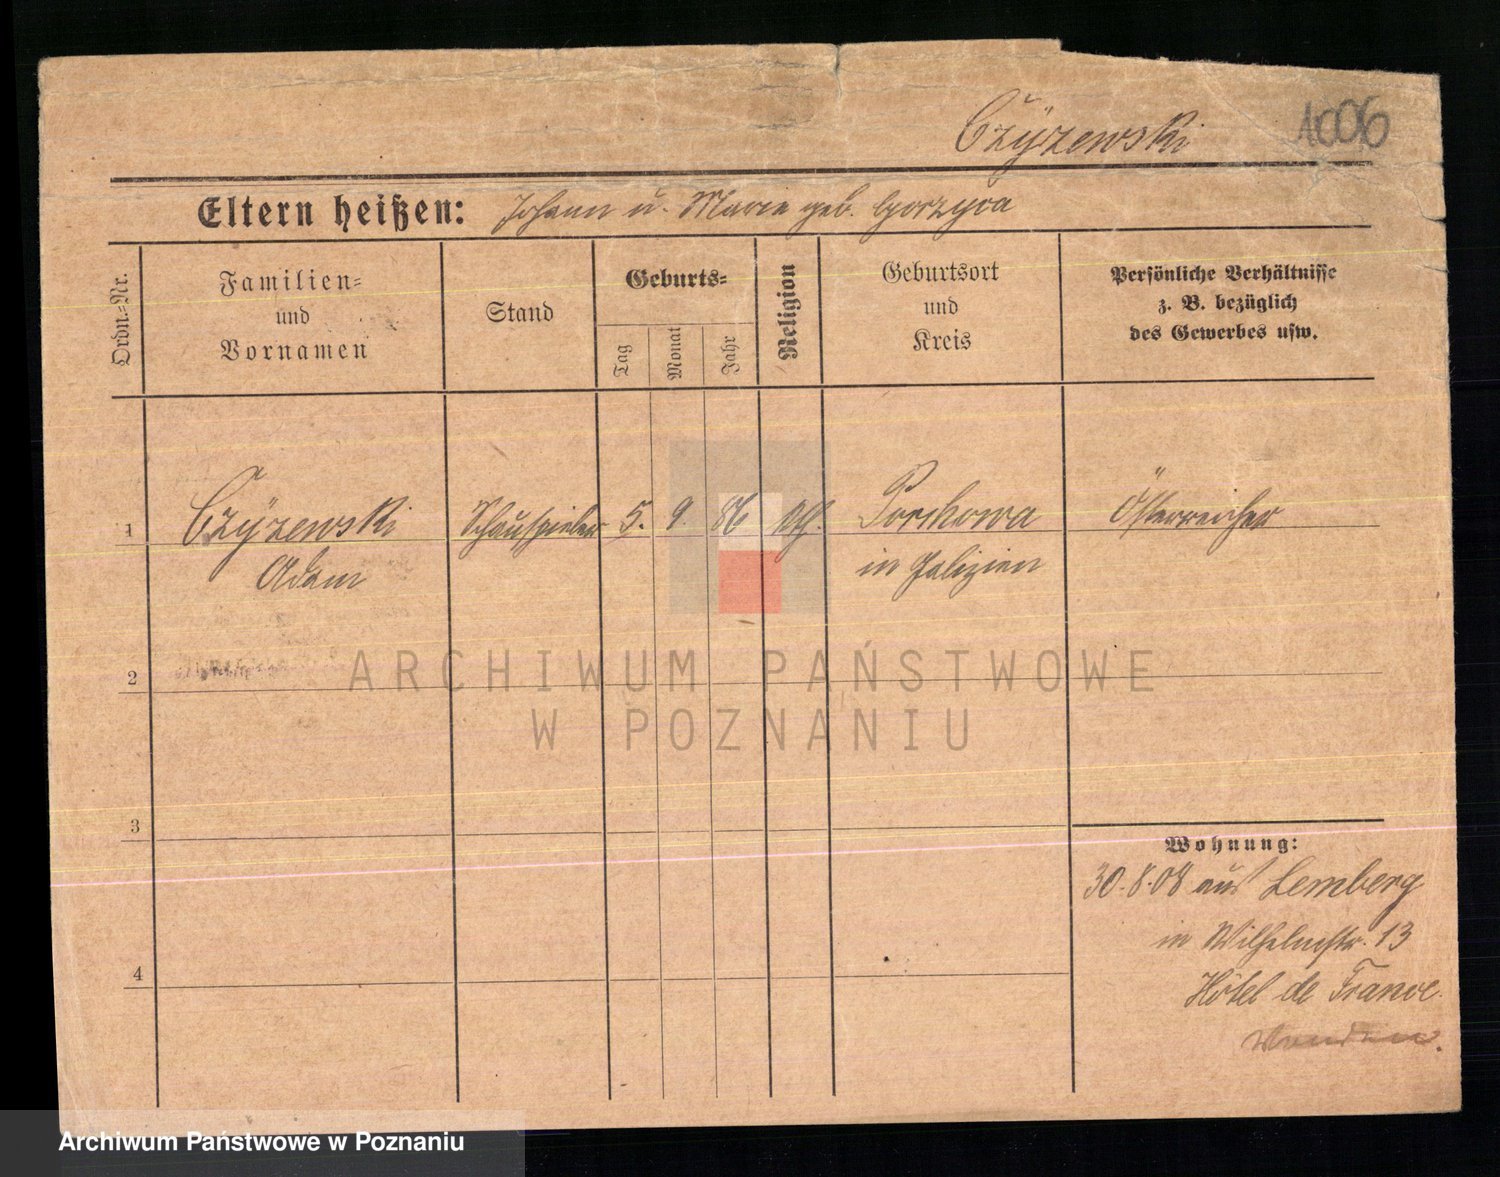 Czyżewski 1006
Eltern heißen: Johann u. Marie geb.
Ordn.=Nr.
Familien=
und
Vornamen
Stand
Geburts=
Tag
Monat
Jahr
Religion
Geburtsort
und
Kreis
Persönliche Verhältnisse
z. B. bezüglich
des Gewerbes usw.
1 Czyżewski Schauspieler 5. 9. 86 Porchowa Österreicher
Adam in Galizien
2
3
4
Wohnung:
30.8.08 aus Lemberg
in Wilhelmstr. 13
Hôtel de France.
ARCHIWUM PAŃSTWOWE
W POZNANIU
Archiwum Państwowe w Poznaniu